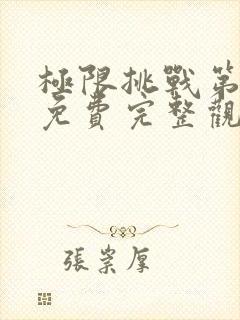 極限挑戰第
免費完整觀
張崇厚